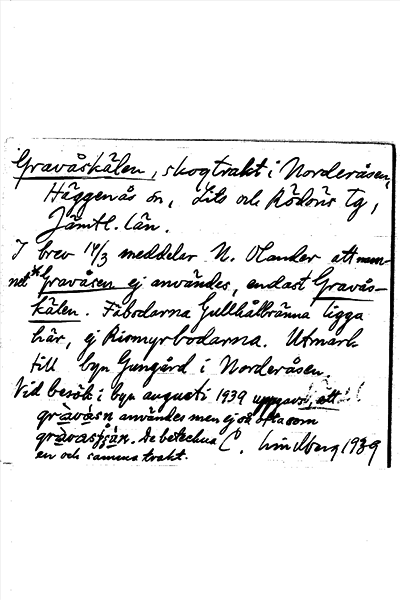 Gravåskälen, skogtrakt i Norderåsen,
Häggenås sn, Lits och Rödöns tg,
Jämtl. län.
I brev 14/3 meddelar N. Olander att nam-
net *Gravåsen ej användes, endast Gravås-
kälen. Fäbodarna Gullhålbränna ligga
här, ej Rismyrbodarna. Utmark
till byn Gungård i Norderåsen.
Vid besök i byn augusti 1939 uppgavs, att
gràvàsn användes men ej så ofta som
gràvasṣ̌än. De beteckna C. Lindberg 1939
en och samma trakt.